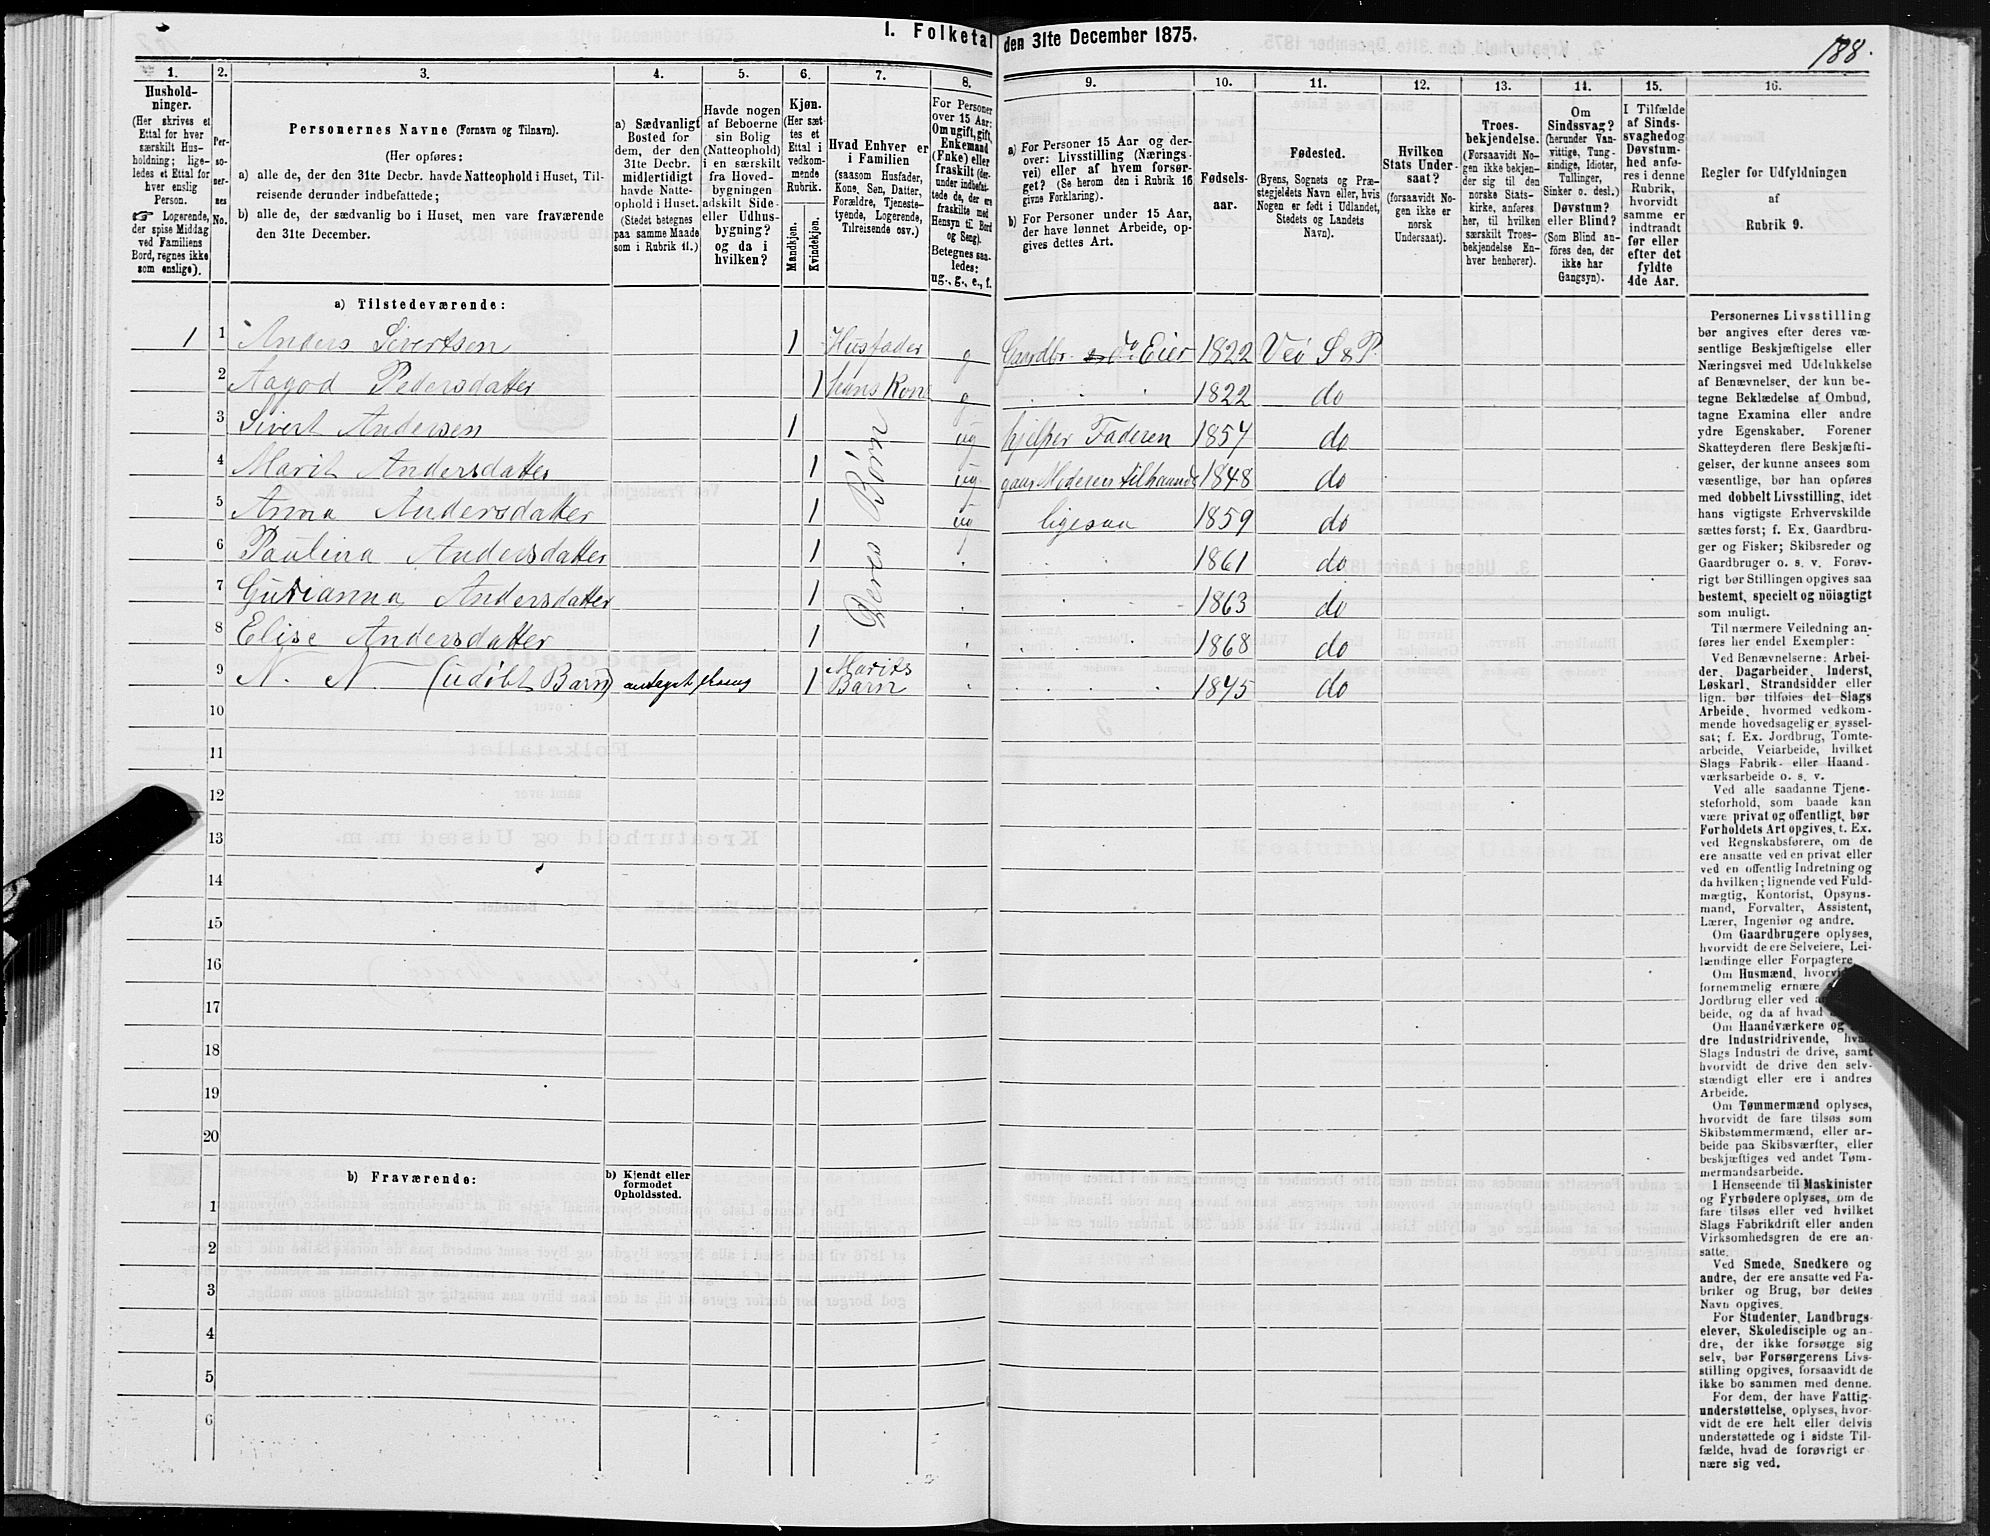 I. Folketal den 31te December 1875.
188.
1.
Husholdninger.
(Her skrives et
Ettal for hver
særskilt Husholdning; ligeledes et Ettal for
hver enslig
Person.
Logerende,
der spise Middag
ved Familiens
Bord, regnes ikke
som enslige).
2.
Personernes
No.
3.
Personernes Navne (Fornavn og Tilnavn).
(Her opføres:
a) alle de, der den 31te Decbr. havde Natteophold i Huset, Tilreisende derunder indbefattede;
b) alle de, der sædvanlig bo i Huset, men vare fraværende
den 31te December.
4.
a) Sædvanligt
Bosted for
dem, der den
31te Decbr.
midlertidigt
havde Natteophold i Huset.
(Stedet betegnes
paa samme Maade
som i Rubrik 11.)
5.
Havde nogen
af Beboerne
sin Bolig
(Natteophold)
i en særskilt
fra Hovedbygningen
adskilt Side-
eller Udhusbygning?
og da i
hvilken?
6.
Kjøn.
(Her sættes et
Ettal i
vedkommende
Rubrik.
Mandkjøn.
Kvindekjøn.
7.
Hvad Enhver er
i Familien
(saasom Husfader,
Kone, Søn, Datter,
Forældre, Tjenestetyende, Logerende,
Tilreisende osv.)
8.
For Personer
over 15 Aar:
Om ugift, gift,
Enkemand
(Enke) eller
fraskilt (derunder indbefattede de, der ere
fraskilte med
Hensyn til Bord
og Seng).
Betegnes saaledes:
ug., g., e., f.
9.
a) For Personer 15 Aar og derover: Livsstilling (Næringsvei) eller af hvem forsørget? (Se herom den i Rubrik 16
givne Forklaring).
b) For Personer under 15 Aar,
der have lønnet Arbeide, opgives dettes Art.
10.
Fødselsaar.
11.
Fødested.
(Byens, Sognets og Præstegjeldets Navn eller, hvis
Nogen er født i Udlandet,
Stedets og Landets
Navn).
12.
Hvilken
Stats Undersaat?
(forsaavidt Nogen ikke er
norsk
Undersaat).
13.
Troesbekjendelse.
(Forsaavidt Nogen ikke bekjender sig til den
norske Statskirke, anføres
her, til hvilken
særskilt Troesbekjendelse Enhver henhører).
14.
Om
Sindssvag?
(herunder Vanvittige, Tungsindige, Idioter,
Tullinger,
Sinker o. desl.)
Døvstum?
eller Blind?
(Som Blind anføres den, der
ikke har
Gangsyn).
15.
I Tilfælde
af Sindssvaghed og
Døvstumhed anføres i denne
Rubrik,
hvorvidt
samme er
indtraadt
før eller
efter det
fyldte
4de Aar.
16.
Regler for Udfyldningen
af
Rubrik 9.
a) Tilstedeværende:
1 1 Anders Sivertsen 1 Husfader g Gaardbr. do Eier 1822 Veö S & P.
2 Aagod Pedersdatter 1 hans Kone g 1822 do
3 Sivert Andersen 1 ug hjelper Faderen 1857 do
4 Marit Andersdatter 1 ug. gaar Moderen tilhaande 1848 do
5 Anna Andersdatter 1 ug ligesaa 1859 do
6 Paulina Andersdatter 1 1861 do
7 Gurianna Andersdatter 1 1863 do
8 Elise Andersdatter 1 1868 do
Deres Børn
9 N. N. (udöbt Barn) 1 Marits
Barn 1875 do
10
11
12
13
14
15
16
17
18
19
20
b) Fraværende:
b) Kjendt eller
formodet
Opholdssted.
1
2
3
4
5
6
Personernes Livsstilling
bør angives efter deres væsentlige Beskjæftigelse eller
Næringsvei med Udelukkelse
af Benævnelser, der kun betegne Beklædelse af Ombud,
tagne Examina eller andre
ydre Egenskaber. Forener
Skatteyderen flere Beskjæftigelser, der kunne ansees som
væsentlige, bør han opføres
med dobbelt Livsstilling, idet
hans vigtigste Erhvervskilde
sættes først; f. Ex. Gaardbruger og Fisker; Skibsreder og
Gaardbruger o. s. v. Forøvrigt bør Stillingen opgives saa
bestemt, specielt og nöiagtigt
som muligt.
Til nærmere Veiledning anføres her endel Exempler:
Ved Benævnelserne: Arbeider, Dagarbeider, Inderst,
Løskarl, Strandsidder eller
lign. bør tilføies det Slags
Arbeide, hvormed vedkommende hovedsagelig er sysselsat; f. Ex. Jordbrug, Tomtearbeide, Veiarbeide, hvilket
Slags Fabrik- eller Haandværksarbeide o. s. v.
Ved alle saadanne Tjenesteforhold, som baade kan
være privat og offentligt, bør
Forholdets Art opgives, t. Ex.
ved Regnskabsførere, om de
ere ansatte ved en privat eller
ved en offentlig Indretning og
da hvilken; lignende ved Fuldmægtig, Kontorist, Opsynsmand, Forvalter, Assistent,
Lærer, Ingeniør og andre.
Om Gaardbrugere oplyses,
hvorvidt de ere Selveiere, Leilændinge eller Forpagtere
Om Husmænd,
fornemmelig ernære
Jordbrug eller ved
beide, og da af hvad
Om Haandværkere og
dre Industridrivende,
Slags Industri de drive, samt
hvorvidt de drive den selvstændigt eller ere i andres
Arbeide.
Om Tømmermænd oplyses,
hvorvidt de fare tilsøs som
Skibstømmermænd, eller arbeide paa Skibsværfter, eller
beskjæftiges ved andet Tømmermandsarbeide.
I Henseende til Maskinister
og Fyrbødere oplyses, om de
fare tilsøs eller ved hvilket
Slags Fabrikdrift eller anden
Virksomhedsgren de ere ansatte.
Ved Smede, Snedkere og
andre, der ere ansatte ved Fabriker og Brug, bør dettes
Navn opgives.
For Studenter, Landbrugselever, Skoledisciple og andre, der ikke forsørge sig
selv, bør Forsørgerens Livsstilling opgives, forsaavidt de
ikke bo sammen med denne.
For dem, der have Fattigunderstøttelse, oplyses, hvorvidt de ere helt eller delvis
understøttede og i sidste Tilfælde, hvad de forøvrigt ernære sig ved.